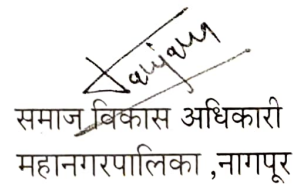 समाज विकास अधिकारी
महानगरपालिका ,नागपूर